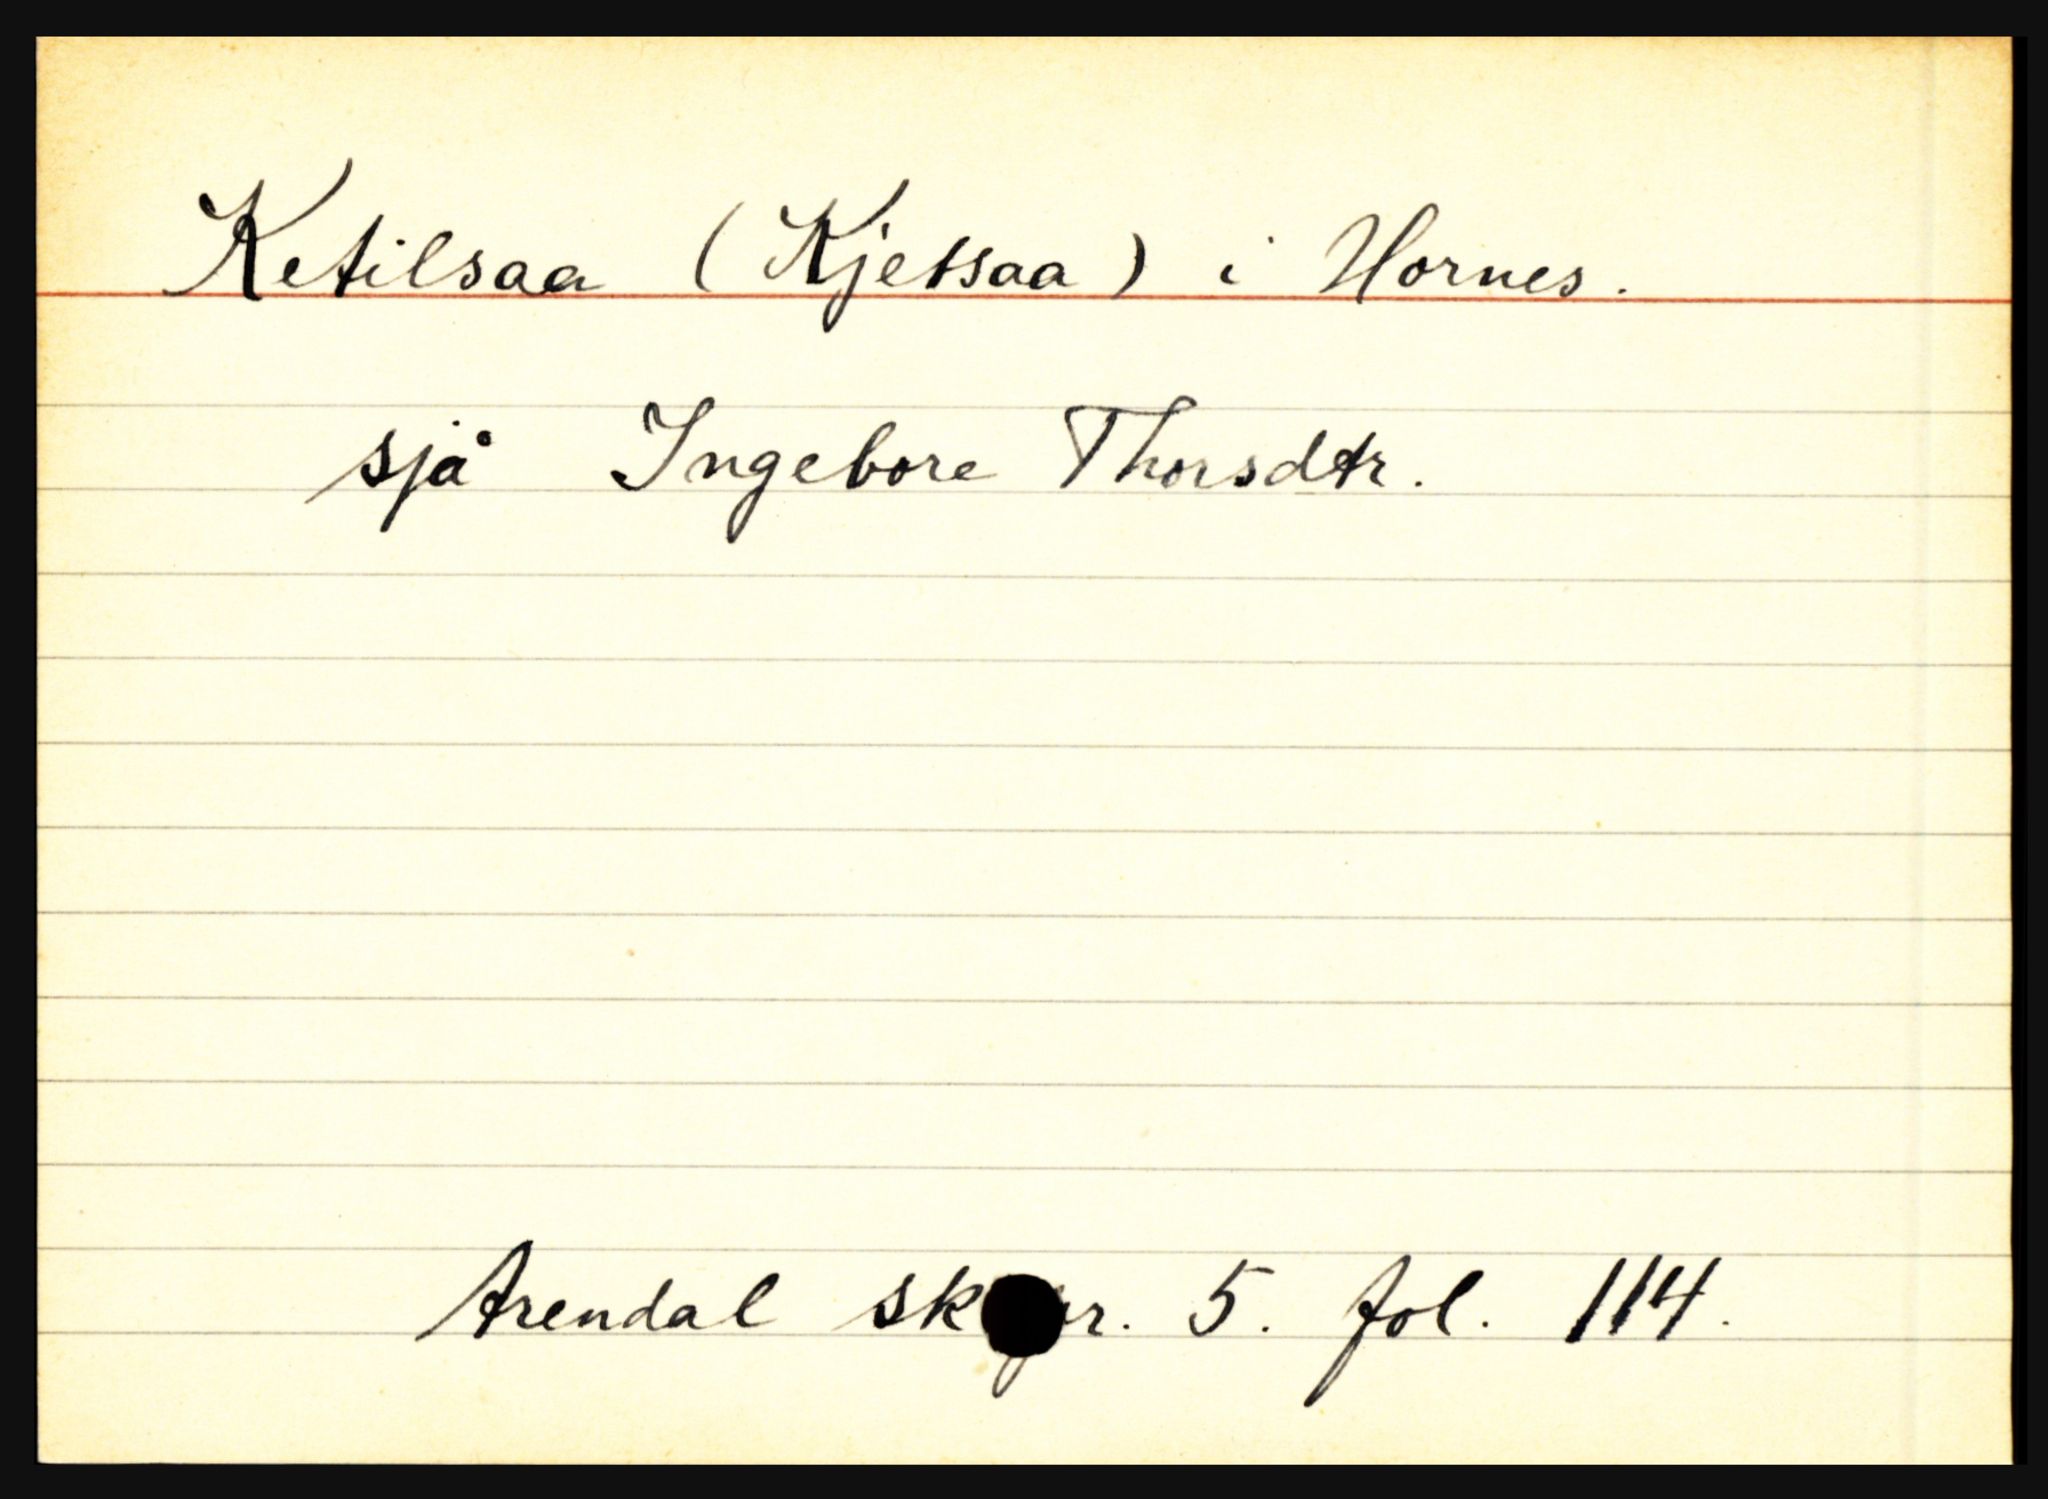 Ketilsaa (Kjetsaa) i Hornes.
sjå Ingebore Thorsdtr.
Arendal 5. fol. 114.